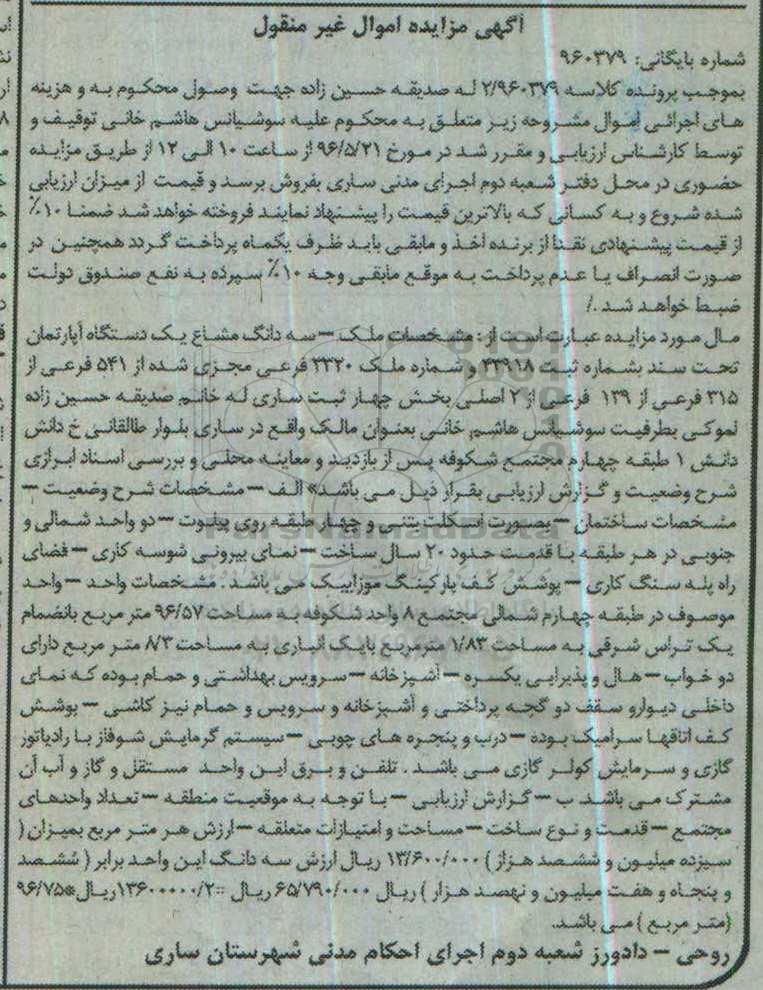 آگهی مزایده اموال غیر منقول
شماره بایگانی: ۹۶۰۳۷۹
بموجب پرونده کلاسه ۲/۹۶۰۳۷۹ له صدیقه حسین زاده جهت وصول محکوم به و هزینه
های اجرائی اموال مشروحه زیر متعلق به محکوم علیه سوشیانس هاشم خانی توقیف و
توسط کارشناس ارزیابی و مقرر شد در مورخ ۹۶/۵/۲۱ از ساعت ۱۰ الی ۱۲ از طریق مزایده
حضوری در محل دفتر شعبه دوم اجرای مدنی ساری بفروش برسد و قیمت از میزان ارزیابی
شده شروع و به کسانی که بالاترین قیمت را پیشنهاد نمایند فروخته خواهد شد ضمنا ۱۰٪
از قیمت پیشنهادی نقدا از برنده اخذ و مابقی باید ظرف یکماه پرداخت گردد همچنین در
صورت انصراف یا عدم پرداخت به موقع مابقی وجه ۱۰٪ سپرده به نفع صندوق دولت
ضبط خواهد شد ./
مال مورد مزایده عبارت است از : مشخصات ملک – سه دانگ مشاع یک دستگاه آپارتمان
تحت سند بشماره ثبت ۴۳۹۱۸ و شماره ملک ۳۳۲۰ فرعی مجزی شده از ۵۴۱ فرعی از
۳۱۵ فرعی از ۱۳۹ فرعی از ۲ اصلی بخش چهار ثبت ساری له خانم صدیقه حسین زاده
لموکی بطرفیت سوشیانس هاشم خانی بعنوان مالک واقع در ساری بلوار طالقانی خ دانش
دانش ۱ طبقه چهارم مجتمع شکوفه پس از بازدید و معاینه محلی و بررسی اسناد ابرازی
شرح وضعیت و گزارش ارزیابی بقرار ذیل می باشد» الف – مشخصات شرح وضعیت –
مشخصات ساختمان – بصورت اسکلت بتنی و چهار طبقه روی پیلوت – دو واحد شمالی و
جنوبی در هر طبقه با قدمت حدود ۲۰ سال ساخت – نمای بیرونی شوسه کاری – فضای
راه پله سنگ کاری – پوشش کف پارکینگ موزاییک می باشد . مشخصات واحد – واحد
موصوف در طبقه چهارم شمالی مجتمع ۸ واحد شکوفه به مساحت ۹۶/۵۷ متر مربع بانضمام
یک تراس شرقی به مساحت ۱/۸۳ مترمربع بایک انباری به مساحت ۸/۳ متر مربع دارای
دو خواب – هال و پذیرایی یکسره – آشپزخانه – سرویس بهداشتی و حمام بوده که نمای
داخلی دیوارو سقف دو گچه پرداختی و آشپزخانه و سرویس و حمام نیز کاشی – پوشش
کف اتاقها سرامیک بوده – درب و پنجره های چوبی – سیستم گرمایش شوفاژ با رادیاتور
گازی و سرمایش کولر گازی می باشد . تلفن و برق این واحد مستقل و گاز و آب آن
مشترک می باشد. ب – گزارش ارزیابی – با توجه به موقعیت منطقه – تعداد واحدهای
مجتمع – قدمت و نوع ساخت – مساحت و امتیازات متعلقه – ارزش هر متر مربع بمیزان (
سیزده میلیون و ششصد هزار ) ۱۳/۶۰۰/۰۰۰ ریال ارزش سه دانگ این واحد برابر ( ششصد
و پنجاه و هفت میلیون و نهصد هزار ) ریال ۶۵/۷۹۰/۰۰۰ ریال = ۱۳۶۰۰۰۰۰/۲ریال*۹۶/۷۵
(متر مربع ) می باشد.
روحی – دادورز شعبه دوم اجرای احکام مدنی شهرستان ساری